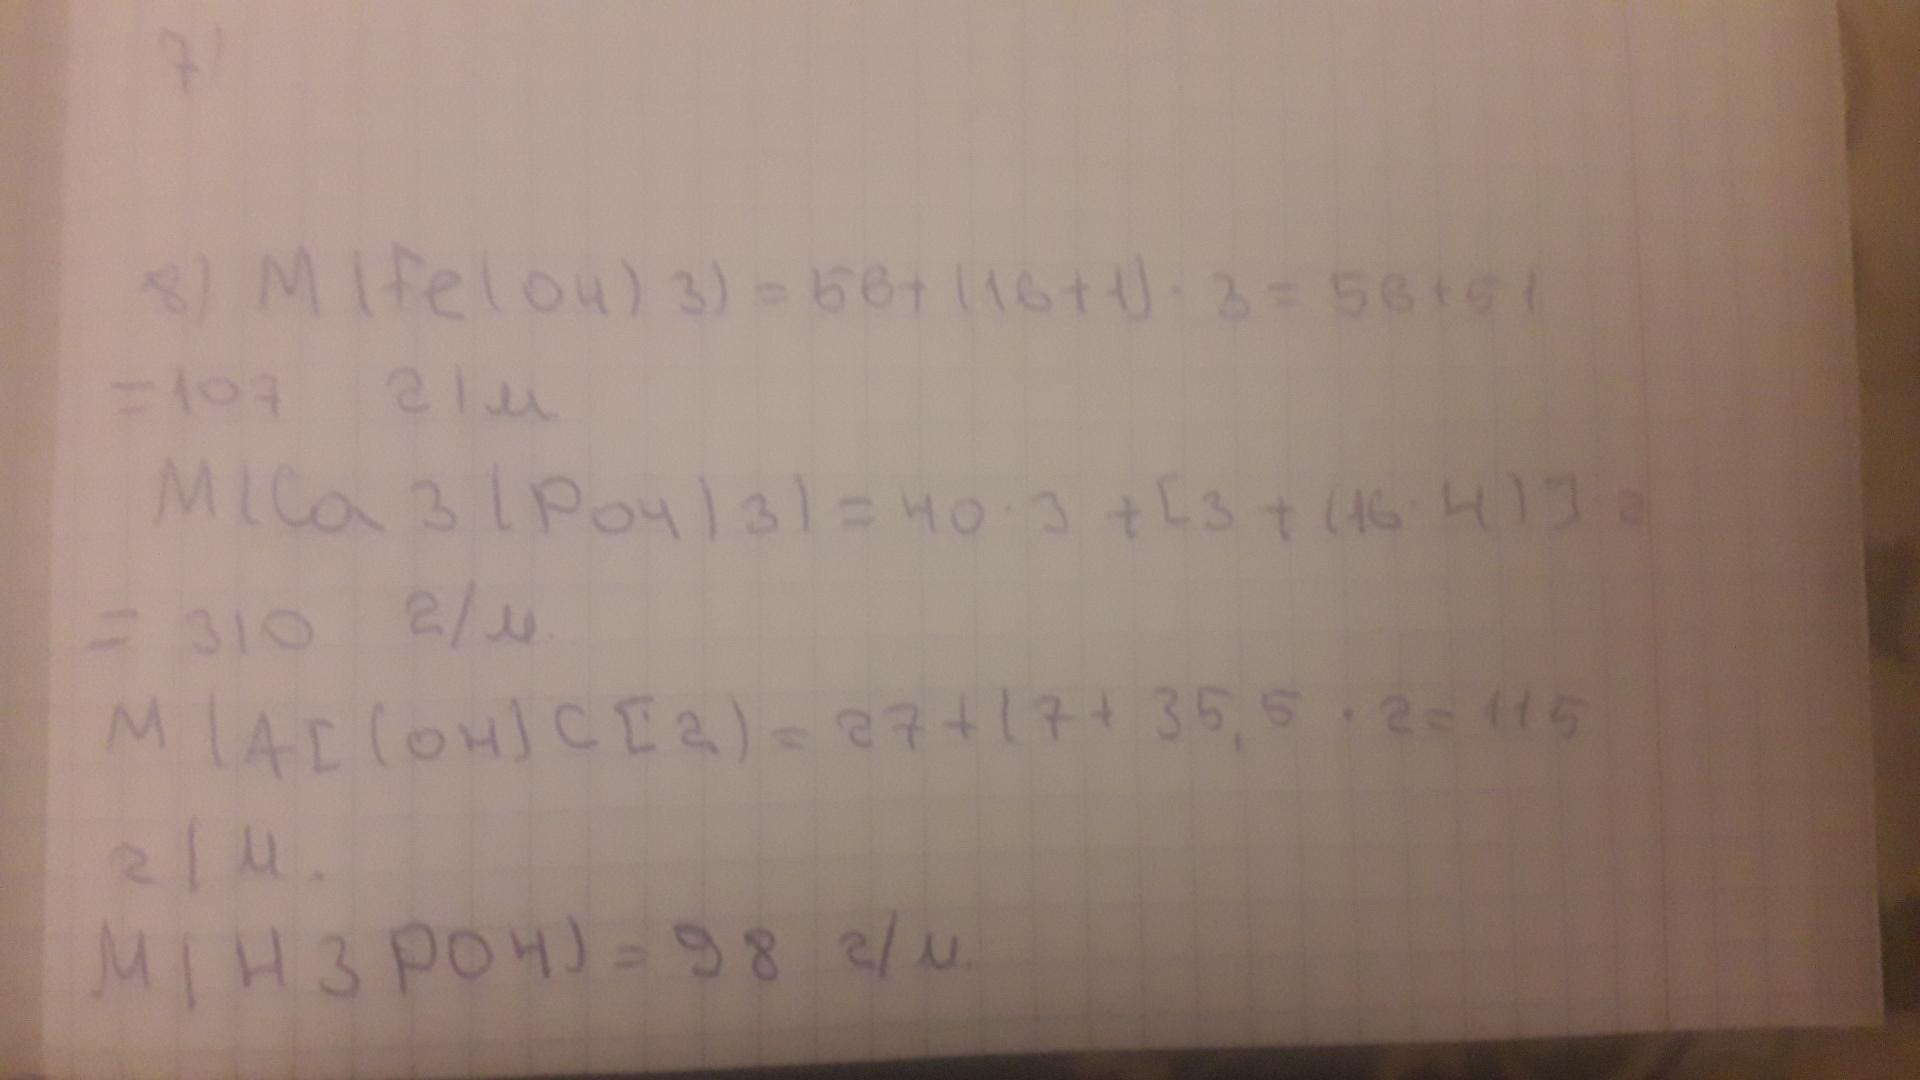 7)
8) М(Fe(OH)3)=56+(16+1)·3=56+51
=107 г/м
М(Ca3(PO4)3)=40·3+[3+(16·4)]·2
= 310 г/м.
М(Al(OH)Cl2)=27+17+35,5·2=115
г/м.
М(H3PO4)=98 г/м.